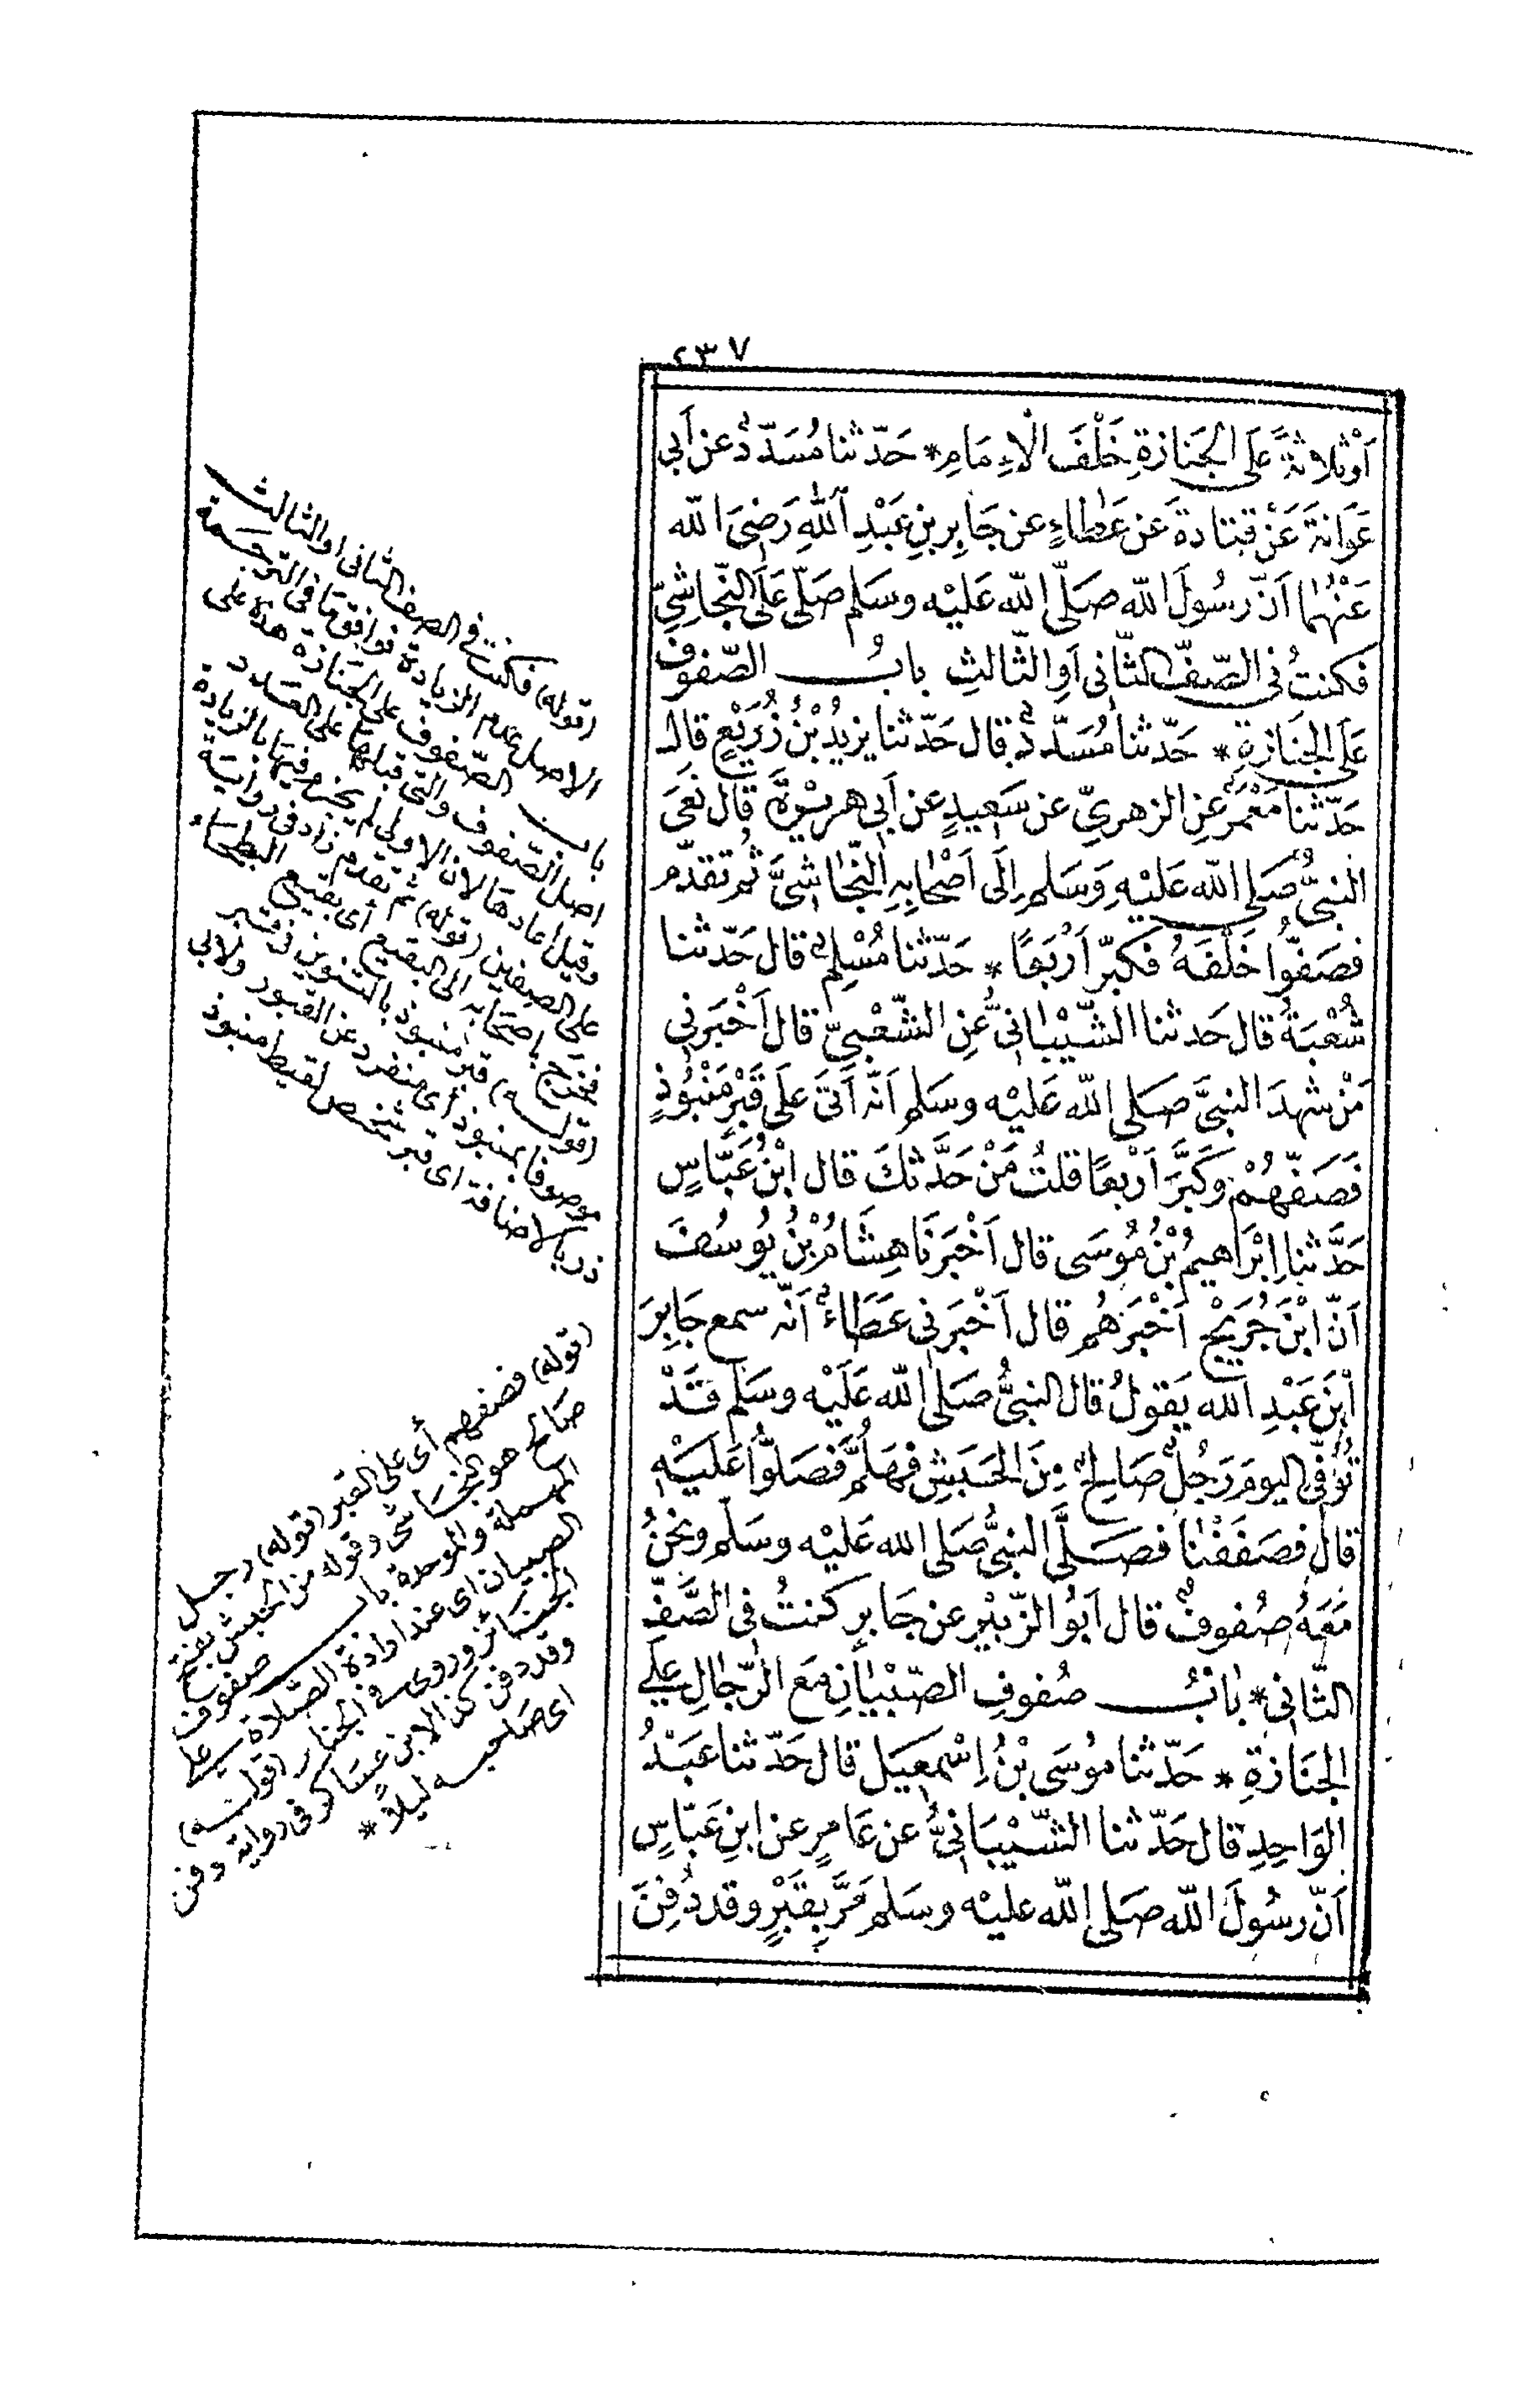 ٢٣٧
اَوْثلاثةً عَلَى الجَنازةِ خَلْفَ الْاِمَامِ * حَدّثنا مُسَدّدٌ عن اَبي
عَوَانةَ عَنْ قَتادةَ عَن عَطاءٍ عن جَابِرِ بنِ عَبْدِ اللّٰهِ رَضِيَ اللّه
عَنْهُما اَنّ رسُولَ اللّه صَلَّى اللّه عَليْه وسَلم صَلّى عَلَى النّجاشِيّ
فكنتُ في الصّفّ الثّانى اَوِ الثّالثِ بابُ الصّفوف
عَلَى الجَنَازةِ * حَدّثنا مُسَدّدٌ قال حَدّثنا يزيدُ بْنُ زُرَيْعٍ قال
حَدّثنا مَعْمَرٌ عَنِ الزهريّ عن سَعِيدٍ عن اَبي هريْرَةَ قال نَعَى
النبيُّ صَلى اللّه عَليْهِ وَسَلم اِلَى اَصْحابِهِ النّجاشيَّ ثُم تقدّم
فصَفّوُا خَلْفَهُ فكبّر اَرْبَعًا * حَدّثنا مُسْلِمٌ قال حَدّثنا
شُعْبَةُ قال حَدثنا الشّيْبانىُّ عَنِ الشّعْبيّ قال اَخْبَرني
مَنْ شهدَ النبيَّ صَلى اللّه عَليْه وسَلم اَنّه اَتَى عَلَى قَبْرٍ مَنْبُوذٍ
فَصَفّهُمْ وَكَبَّرَ اَرْبعًا قلتُ مَنْ حَدَّثكَ قال ابْنُ عَبّاسٍ
حَدَّثنا اِبْرَاهيمُ بْنُ مُوسَى قال اَخْبَرَنَا هِشَامُ بْنُ يُوسُفَ
اَنّ ابْنَ جُرَيْجٍ اَخْبَرَهُم قال اَخْبَرَني عَطَاءٌ اَنّه سمع جَابِرَ
ابْنَ عَبْدِ اللّه يَقولُ قال النبيُّ صَلى اللّه عَلَيْه وسَلم قَدْ
تُوُفّىَ اليومَ رَجُلٌ صَالِحٌ مِنَ الحَبَشِ فهَلُمَّ فَصَلُّوا عَلَيْهِ
قال فصَفَفْنا فصَلَّى النبيُّ صَلى الله عَليْه وسَلّم ونحْنُ
مَعَهُ صُفوفٌ قال اَبُو الزّبَيْرِ عن جَابرٍ كنتُ فى الصَّفّ
الثّانِى * بابُ صُفوفِ الصّبْيانِ مَعَ الرّجالِ عَلَى
الجَنَازةِ * حَدّثنا مُوسَى بْنُ اِسْمعِيَل قال حَدّثنا عَبْدُ
الوَاحِدِ قال حَدّثنا الشّيْبَانيُّ عن عَامرٍ عن ابنِ عَبّاسٍ
اَنّ رسُولَ اللّه صَلى اللّه عليْه وسَلم مَرَّ بِقَبْرٍ وقد دُفِنَ
(قوله) فكنت في الصف الثانى او الثالث
الاصل عدم الزيادة فوافق ما فى الترجمة
باب الصّفوف على الجنازة هذه على
اصل الصّفوف والتى قبلها على العدد
وقيل اعادها لان الاولى لم يجزم فيها بالزيادة
على الصفين (قوله) ثم تقدم زاد فى رواية
فخرج باصحابه الى البقيع أى بقيع البطحاء
(قوله) قبر منبوذ بالتنوين فى قبر
موصوفا بمنبوذ أى منفرد عن القبور ولابي
ذر بالاضافة اى قبر شخص لقيط منبوذ
(قوله) فصفهم أى على القبر (قوله) رجل
صالح هو النجاشى وقوله من الحبش بفتح
المهملة والموحدة باب صفوف
الصبيان اى عند ارادة الصّلاة على
الجنائز وروى في الجنائز (قوله)
وقد دفن كذا لابن عساكر فى رواية دفن
اى صاحبه ليلاً *